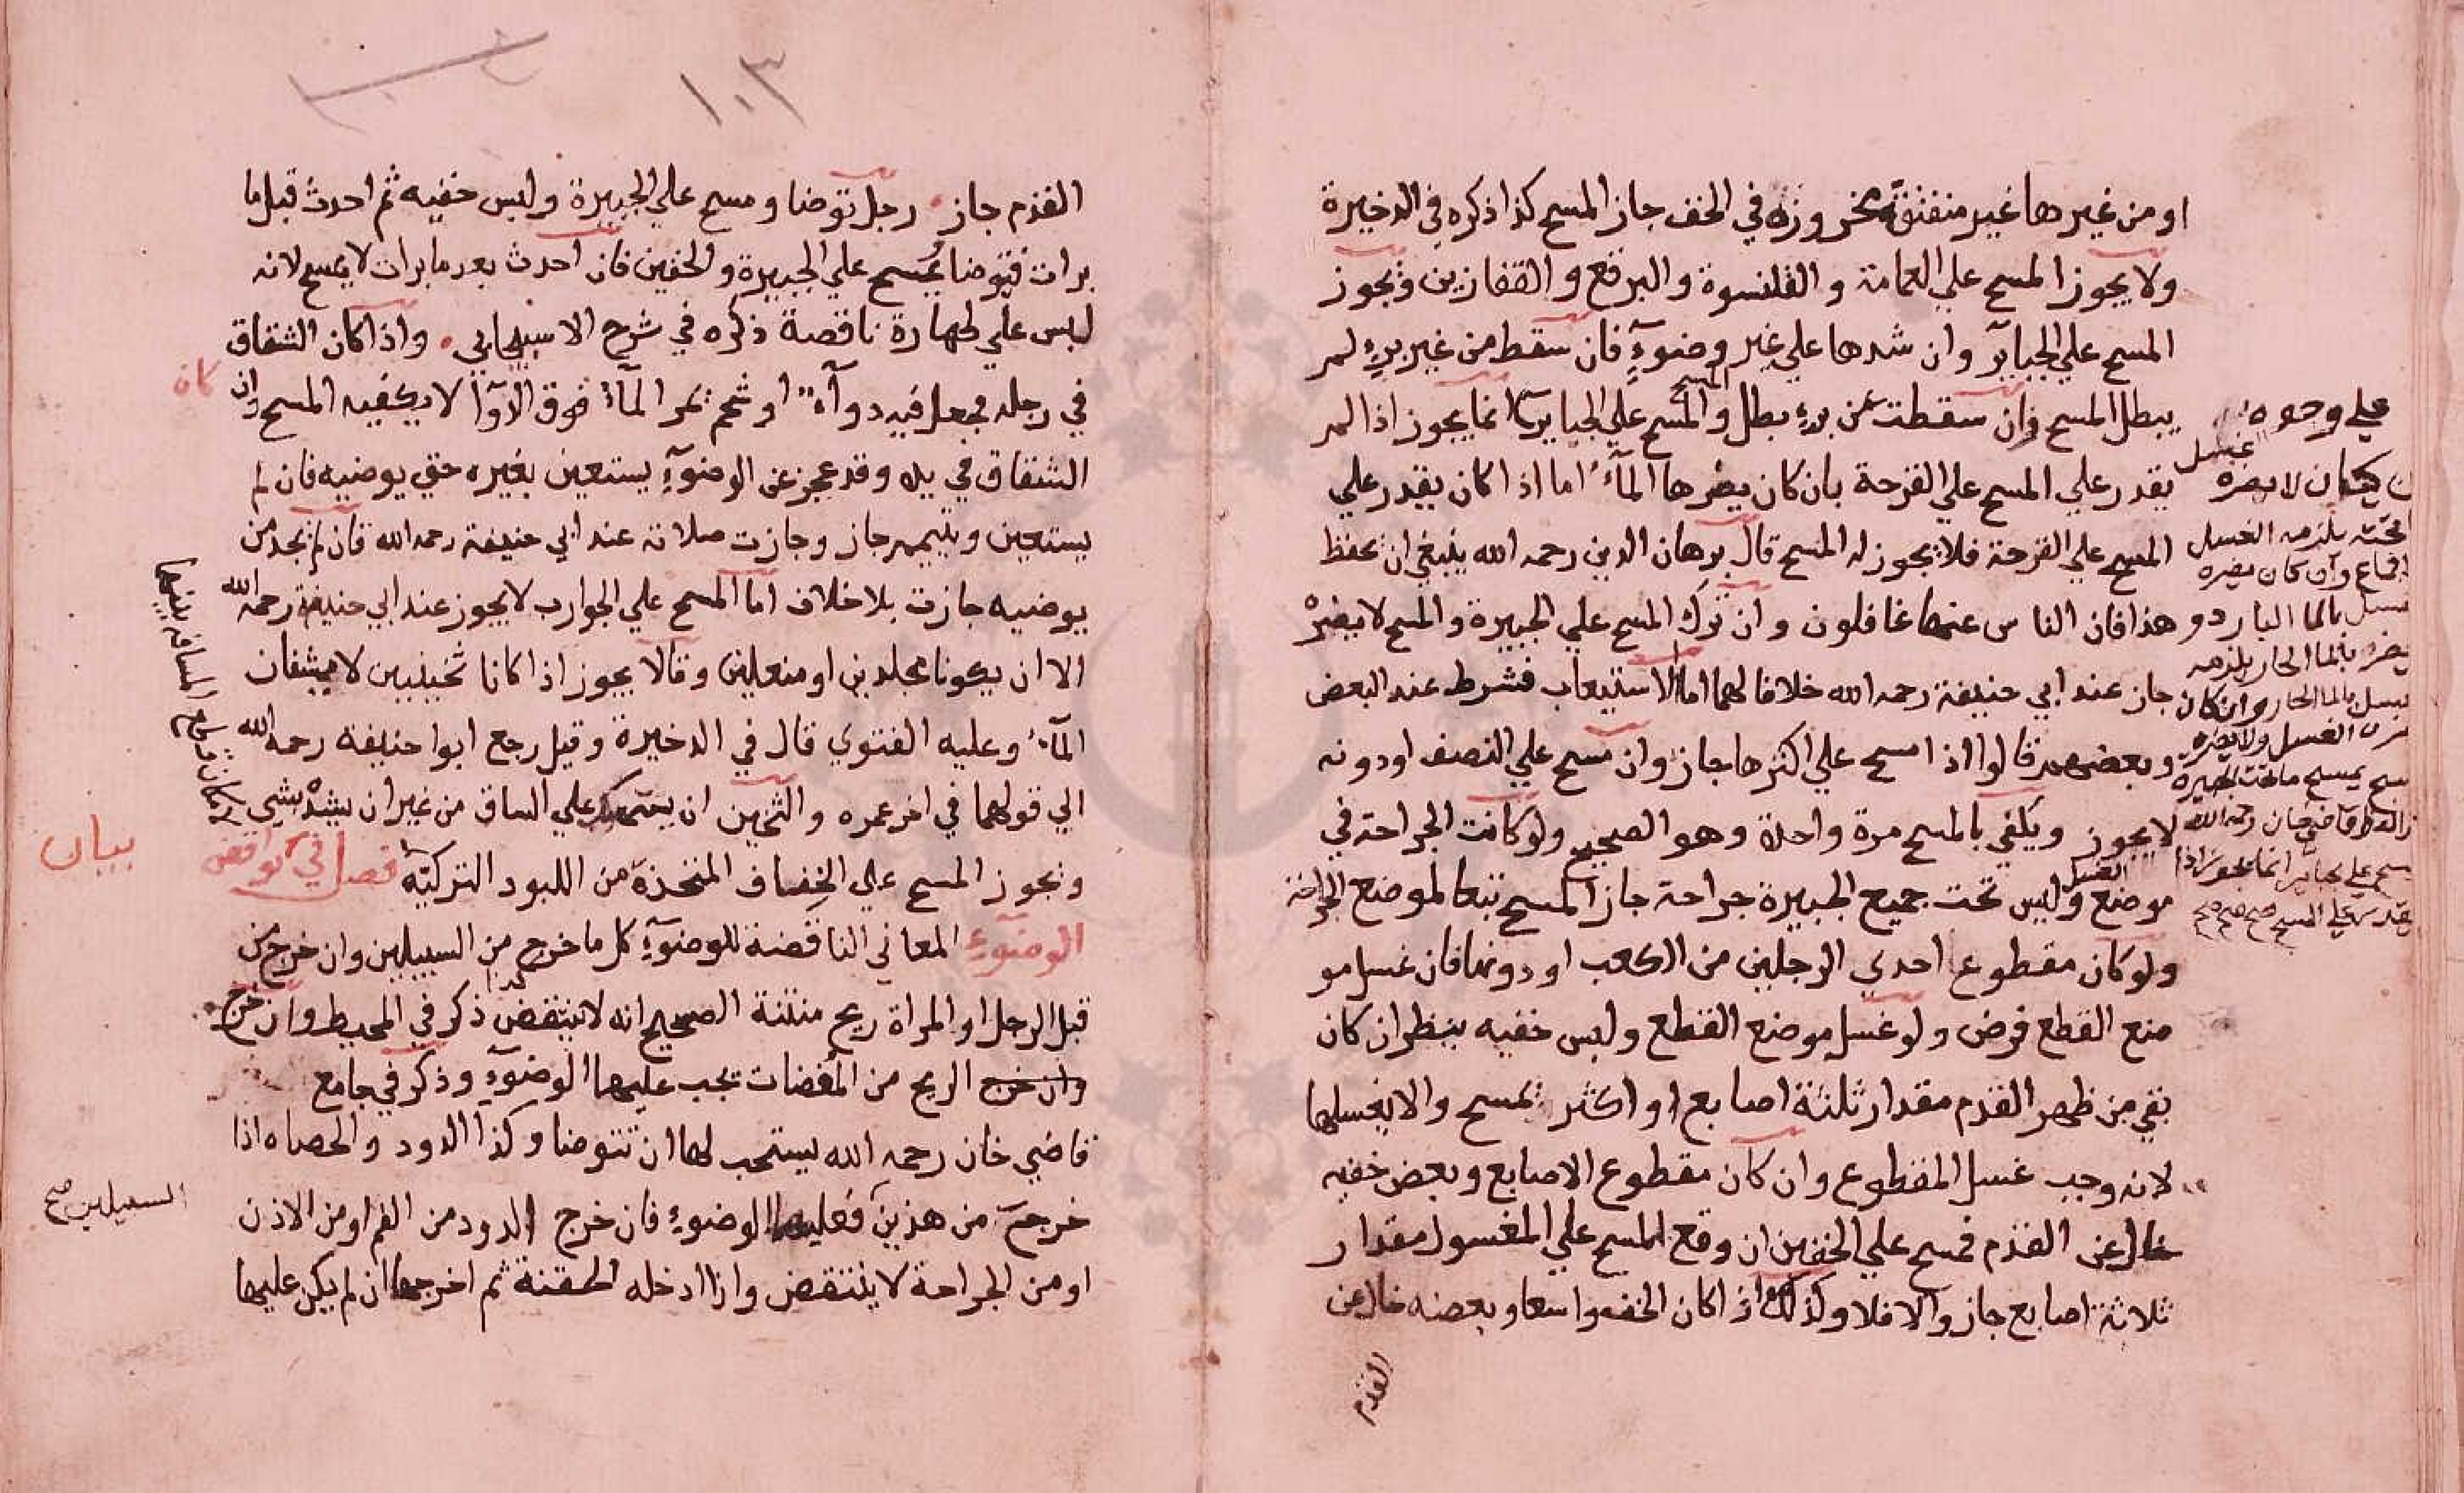 او من غيرها غير منفتقة مخروزة في الخف جاز المسح كذا ذكره في الدخيرة
ولا يجوز المسح علي العمامة والقلنسوة والبرقع والقفازين ويجوز
المسح علي الجبآير وان شدها علي غير وضوءٍ فان سقط من غير برءٍ لمر
يبطل المسح وان سقطت عن برءٍ بطل والمسح علي الجباير انما يجوز اذا لمر
يقدر علي المسح علي القرحة بان كان يضرها المآء اما اذا كان يقدر علي
المسح علي القرحة فلا يجوز له المسح قال برهان الدين رحمه الله ينبغي ان يحفظ
هذا فان الناس عنها غافلون وان ترك المسح علي الجبيرة والمسح لا يضرّ
جاز عند ابي حنيفة رحمه الله خلافا لهما اما الاستيعاب فشرط عند البعض
وبعضهم قالوا اذا مسح علي اكثرها جاز وان مسح علي النصف او دونه
لا يجوز ويكفي بالمسح مرة واحدة وهو الصحيح ولو كانت الجراحة في
موضع وليس تحت جميع الجبيرة جراحة جاز المسح تبعا لموضع الجراحة
ولو كان مقطوع احدي الرجلين من الكعب او دونها فان غسل مو
ضع القطع فرض ولو غسل موضع القطع ولبس خفيه ينظر ان كان
بقي من ظهر القدم مقدار ثلثة اصابع او اكثر يمسح والا يغسلها
لانه وجب غسل المقطوع وان كان مقطوع الاصابع وبعض خفيه
خال عن القدم فمسح علي الخفين ان وقع المسح علي المغسول مقدار
ثلاثة اصابع جاز والا فلا وكذلك اذا كان الخف واسعا وبعضه خال عن
القدم
علي وجوه
ان كان لا يضره غسل
تحته يلزمه الغسل
وان كان يضره
بالما البارد و
يضر بالما الحار يلزمه
بالما الحار وان كان
الغسل ولا يضره
يمسح ما تحت الجبيرة
قاضي خان رحمه الله
انما يجوز اذا
علي المسح صح صح صح
١٠٣
القدم جاز رجل توضا ومسح علي الجبيرة ولبس خفيه ثم احدث قبل ما
برات فتوضا يمسح علي الجبيرة والخفين فان احدث بعد ما برات لا يمسح لانه
لبس علي طهارة ناقصة ذكره في شرح الاسبيجابي واذا كان الشقاق
في رجله فجعل فيه دوآء او شحم يمر المآء فوق الدوآء لا يكفيه المسح وان كان
الشقاق في يده وقد عجز عن الوضوءِ يستعين بغيره حتي يوضيه فان لم
يستعين ويتيمم جاز وجازت صلاته عند ابي حنيفة رحمه الله فان لم يجد من
يوضيه جازت بلا خلاف اما المسح علي الجوارب لا يجوز عند ابي حنيفة رحمه الله
الا ان يكونا مجلدين او منعلين وقالا يجوز اذا كانا ثخينين لا يشفان
المآء وعليه الفتوي قال في الدخيرة وقيل رجع ابوا حنيفة رحمه الله
الي قولهما في اخر عمره والثخين ان يستمسك علي الساق من غير ان يشدّ بشي
ويجوز المسح علي الخفاف المتخذة من اللبود التركيّة فصل في نواقض
الوضوءِ المعاني الناقضة للوضوءِ كل ما خرج من السبيلين وان خرج من
قبل الرجل او المراة ريح منتنة الصحيح انه لا ينتقض كذا ذكر في المحيط وان خرج
وان خرج الريح من المفضات يجب عليها الوضوءِ وذكر في جامع
قاضي خان رحمه الله يستحب لها ان تتوضا وكذا الدود والحصاه اذا
خرج من هذين فعليه الوضوءِ فان خرج الدود من الفم او من الاذن
او من الجراحة لا ينتقض واذا ادخله الحقنة ثم اخرجها ان لم يكن عليها
بيان
السبيلين صح